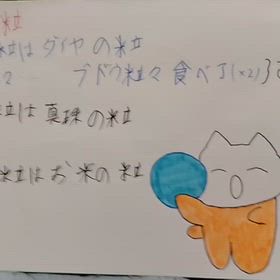 粒
粒は ダイヤ の 粒
2 ブドウ 粒々 食べ
粒は 真珠 の 粒
粒は お 米 の 粒